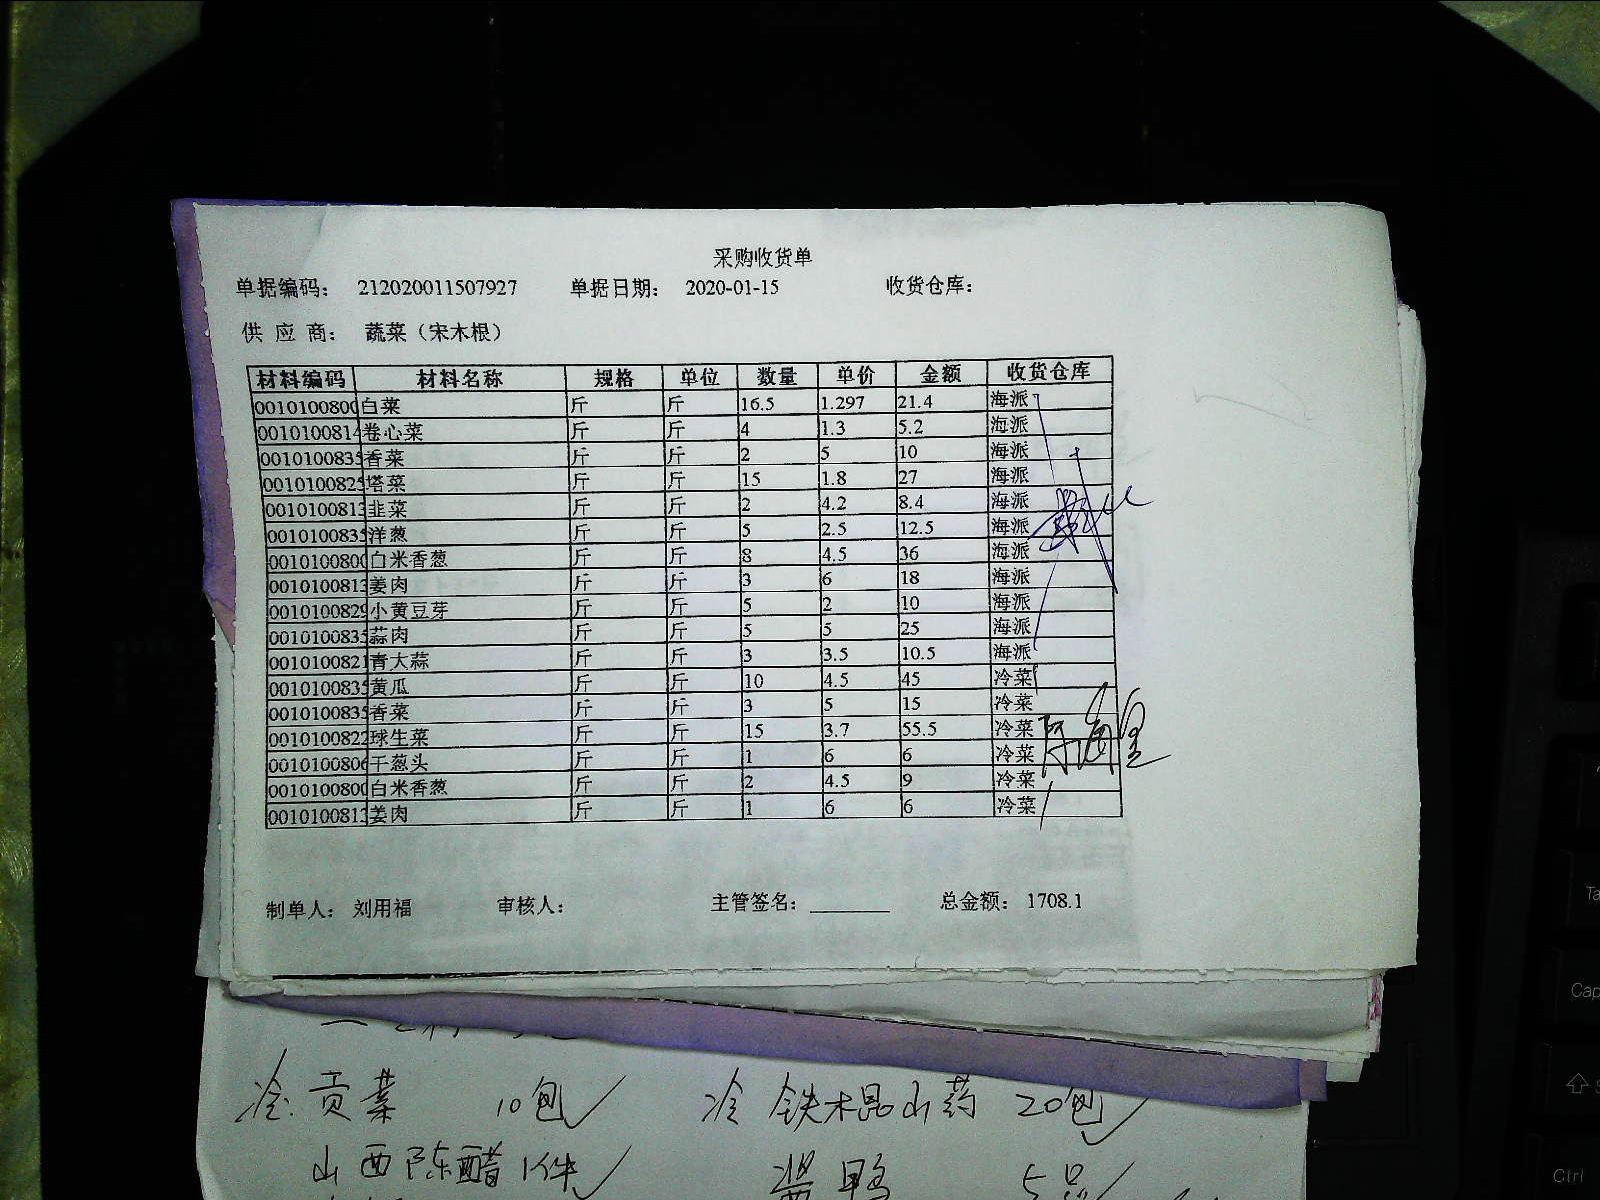 采购收货单
单据编码： 212020011507927 单据日期： 2020-01-15 收货仓库：
供 应 商： 蔬菜（宋木根）
材料编码 材料名称 规格 单位 数量 单价 金额 收货仓库
0010100800 白菜 斤 斤 16.5 1.297 21.4 海派
0010100814 卷心菜 斤 斤 4 1.3 5.2 海派
0010100835 香菜 斤 斤 2 5 10 海派
0010100825 塔菜 斤 斤 15 1.8 27 海派
0010100813 韭菜 斤 斤 2 4.2 8.4 海派
0010100835 洋葱 斤 斤 5 2.5 12.5 海派
0010100800 白米香葱 斤 斤 8 4.5 36 海派
0010100813 姜肉 斤 斤 3 6 18 海派
0010100829 小黄豆芽 斤 斤 5 2 10 海派
0010100835 蒜肉 斤 斤 5 5 25 海派
0010100821 青大蒜 斤 斤 3 3.5 10.5 海派
0010100835 黄瓜 斤 斤 10 4.5 45 冷菜
0010100835 香菜 斤 斤 3 5 15 冷菜
0010100822 球生菜 斤 斤 15 3.7 55.5 冷菜
0010100806 干葱头 斤 斤 1 6 6 冷菜
0010100800 白米香葱 斤 斤 2 4.5 9 冷菜
0010100813 姜肉 斤 斤 1 6 6 冷菜
制单人： 刘用福 审核人： 主管签名：________ 总金额： 1708.1
冷 贡菜 10包 冷 铁木昆山药 20包
山西陈醋 1件 酱鸭
Cap
Ctrl